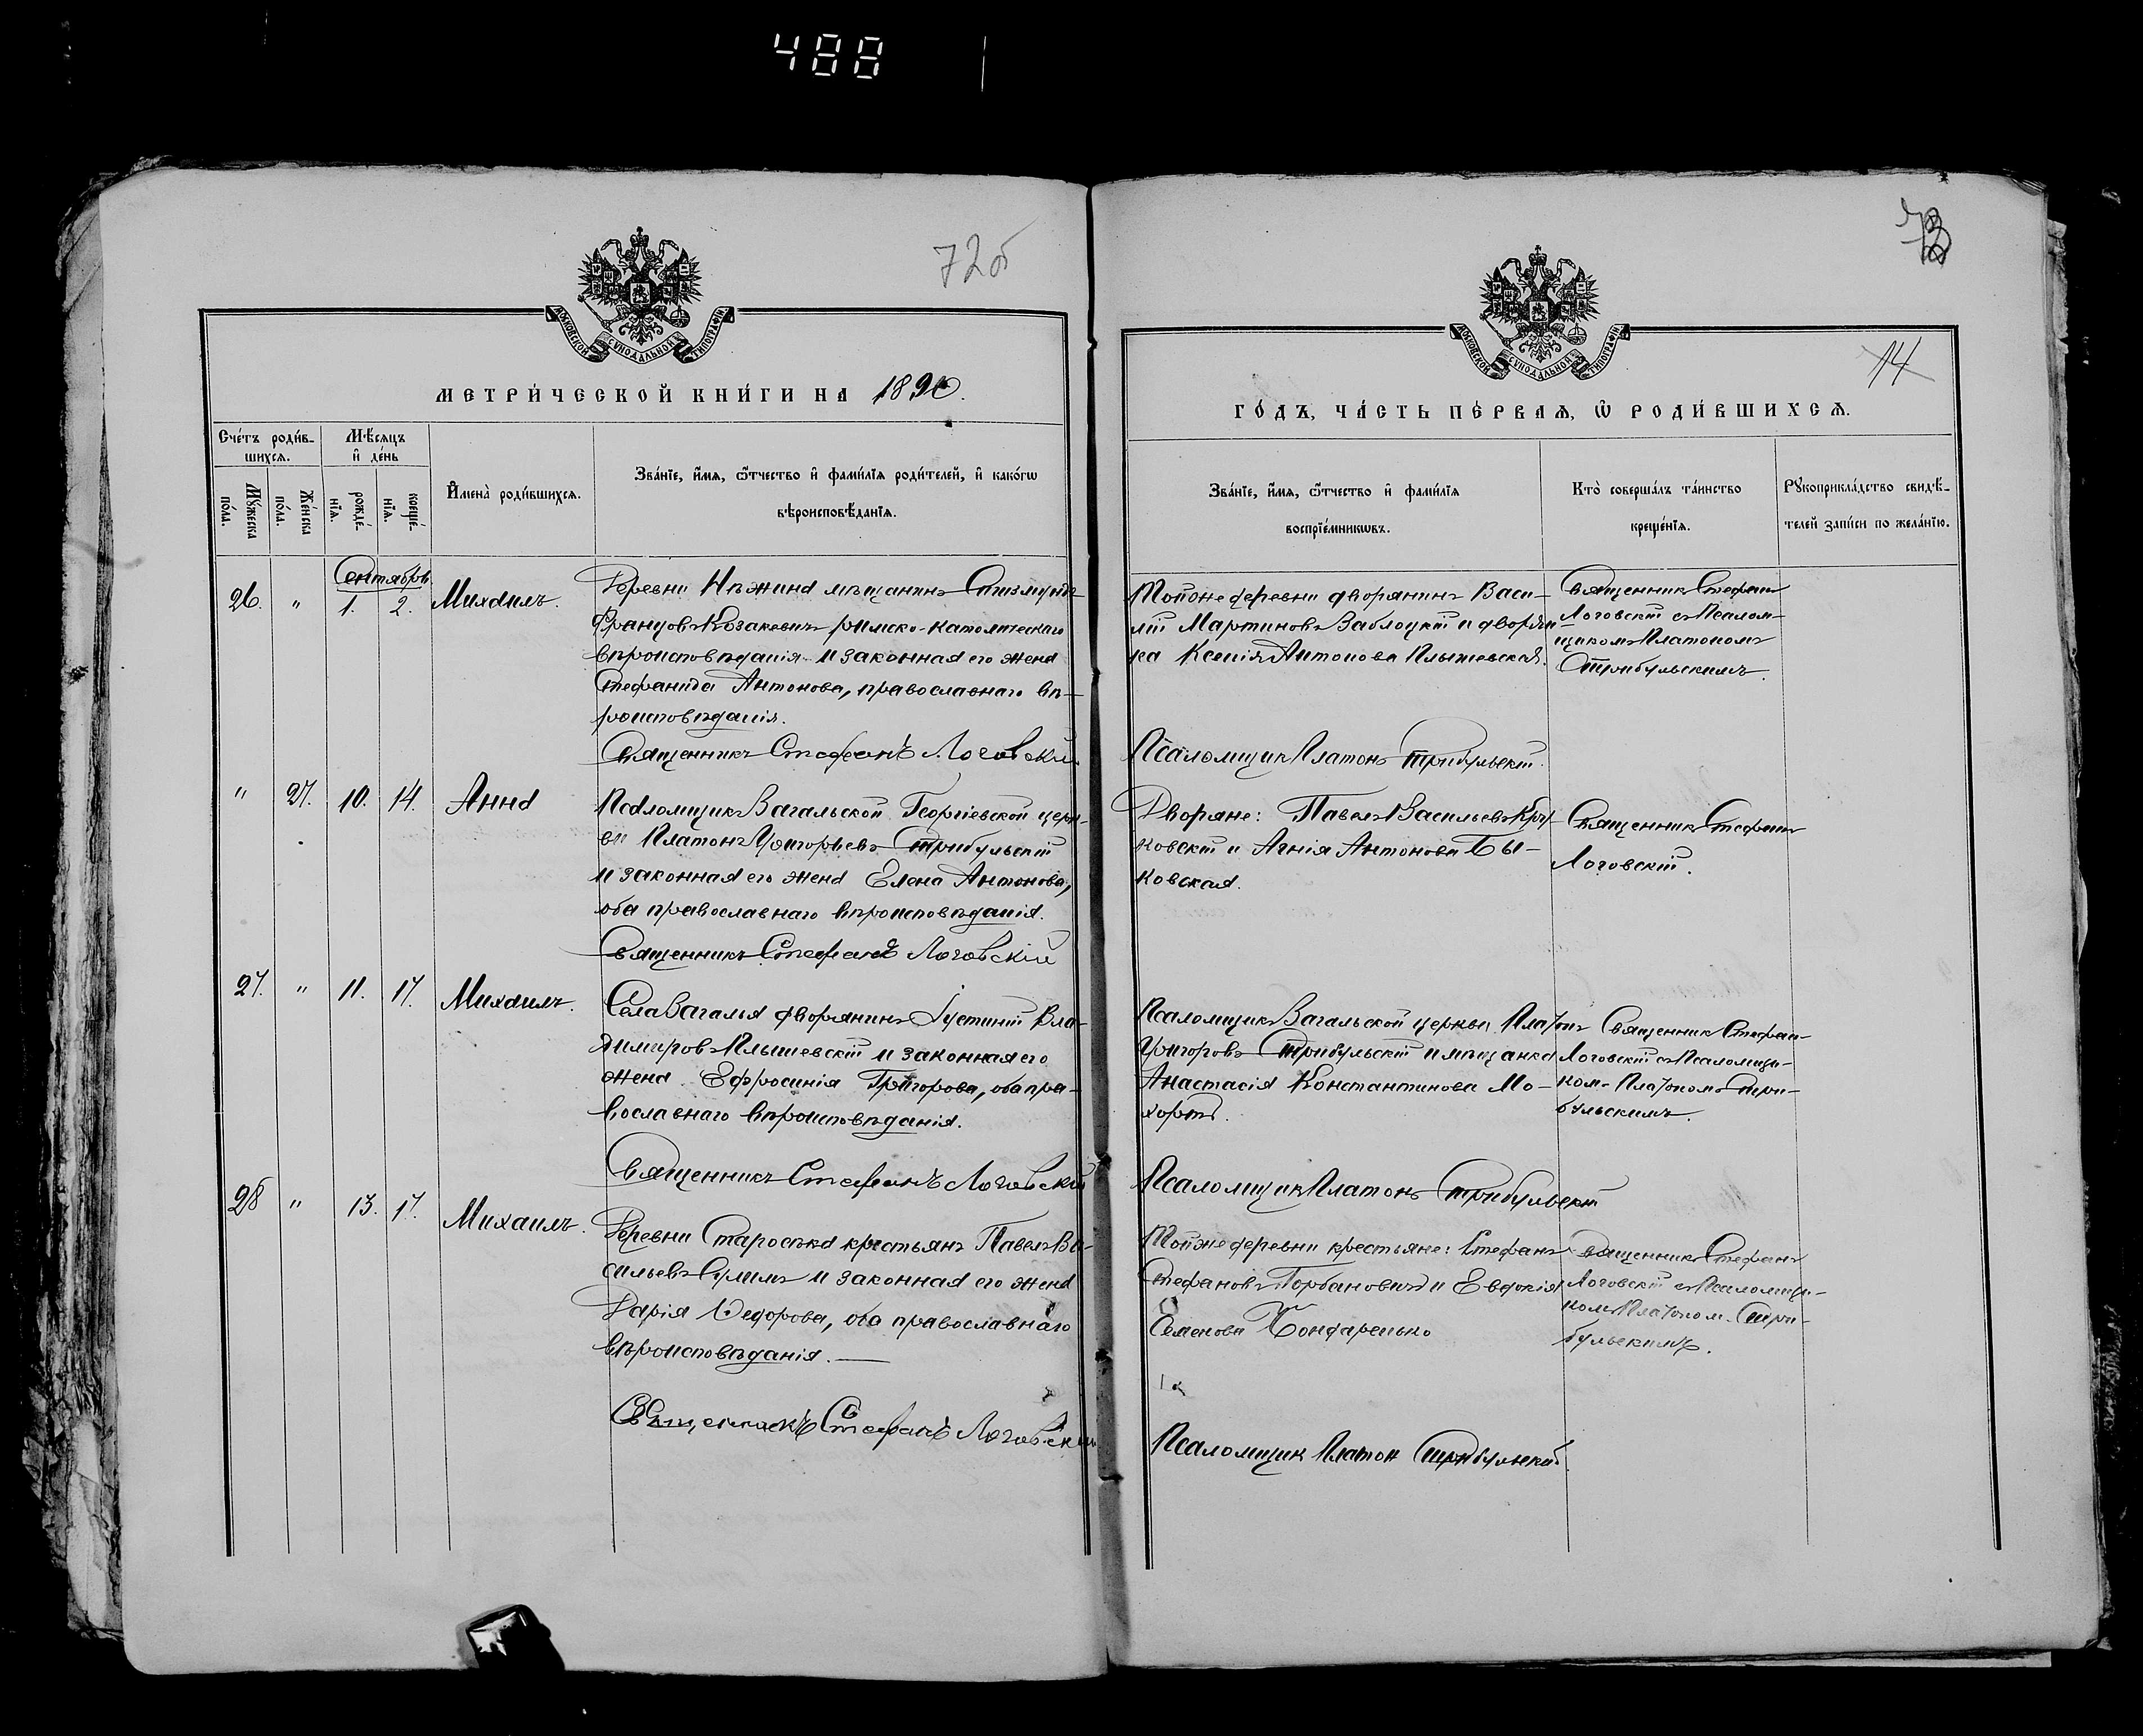 488
72об
73
МОСКОВСКОЙ СѴНОДАЛЬНОЙ ТИПОГРАФІИ
МОСКОВСКОЙ СѴНОДАЛЬНОЙ ТИПОГРАФІИ
14
МЕТРИ́ЧЕСКОЙ КНИ́ГИ НА 1890.
ГО́ДЪ, ЧА́СТЬ ПЕ́РВАѦ, Ѡ҆ РОДИ́ВШИХСѦ.
Сче́тъ роди́в-
шихсѧ.
Мѣ́сѧцъ
и҆ де́нь
Мꙋ́жеска
по́ла.
Же́нска
по́ла.
рожде́-
нїѧ.
креще́-
нїѧ.
И҆мена̀ роди́вшихсѧ.
Зва́нїе, и҆́мѧ, ѻ҆́тчество и҆ фами́лїѧ роди́телей, и҆ како́гѡ
вѣроисповѣ́данїѧ.
Зва́нїе, и҆́мѧ, ѻ҆́тчество и҆ фами́лїѧ
воспрїе́мникѡвъ.
Кто̀ соверша́лъ та́инство
креще́нїѧ.
Рꙋкоприкла́дство свидѣ́-
телей за́писи по жела́нїю.
Сентябрь.
26. " 1. 2. Михаилъ.
Деревни Нѣжина мѣщанинъ Сигизмундъ
Францовъ Козакевичъ римско-католическаго
вѣроисповѣданія и законная его жена
Стефанида Антонова, православнаго вѣ-
роисповѣданія.
Священникъ Стефанъ Логовскій.
Тойже деревни дворянинъ Васи-
лій Мартиновъ Заблоцкій и дворян-
ка Ксенія Антонова Плышевская.
Псаломщикъ Платонъ Трибульскій.
Священникъ Стефанъ
Логовскій съ Псалом-
щикомъ Платономъ
Трибульскимъ.
" 27. 10. 14. Анна
Псаломщикъ Вагальской Георгіевской церк-
ви Платонъ Григорьевъ Трибульскій
и законная его жена Елена Антонова,
оба православнаго вѣроисповѣданія.
Священникъ Стефанъ Логовскій
Дворяне: Павелъ Васильевъ
ковскій и Агнія Антонова Бы-
ковская.
Священникъ Стефанъ
Логовскій.
27. " 11. 17. Михаилъ.
Села Вагалья дворянинъ Іустинъ Вла-
димировъ Плышевскій и законная его
жена Ефросинія Григорова, оба пра-
вославнаго вѣроисповѣданія.
Священникъ Стефанъ Логовскій
Псаломщикъ Вагальской церкви Платонъ
Григоровъ Трибульскій и мѣщанка
Анастасія Константинова Мо-
хортъ.
Псаломщикъ Платонъ Трибульскій
Священникъ Стефан-
Логовскій съ Псаломщи-
комъ Платономъ Три-
бульскимъ.
28 " 13. 17. Михаилъ.
Деревни Староселья крестьянъ Павелъ Ва-
сильевъ Сулимъ и законная его жена
Дарія Ѳедорова, оба православнаго
вѣроисповѣданія.
Священникъ Стефанъ Логовскій
Тойже деревни крестьяне: Стефанъ
Стефановъ Горбановичъ и Евдокія
Семенова Бондаренько
Псаломщикъ Платон Трибульскій
Священникъ Стефанъ
Логовскій съ Псаломщи-
комъ Платоном Три-
бульскимъ.